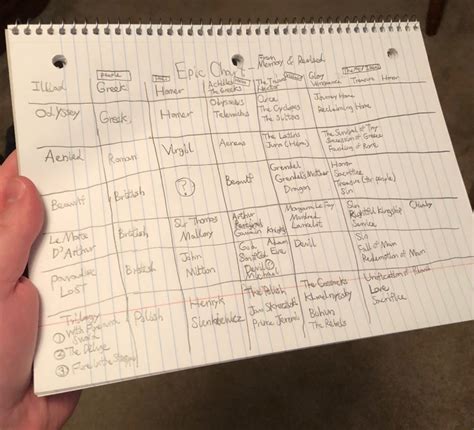 Epic Chart - From Memory & Revised
people
Illiad Greek Homer Achilles The Greeks The Trojans Hector Glory Vengeance Treasure Honor
Odyssey Greek Homer Odysseus Telemachus Circe The Cyclopes The Suitors Journey Home Reclaiming Home
Aenied Roman Virgil Aeneas The Latins Juno (Hera) The Survival of Troy Succession of Greece Founding of Rome
Beowulf British ? Beowulf Grendel Grendel's Mother Dragon Honor Sacrifice Treasure (for people) Sin
Le Morte D'Arthur British Sir Thomas Mallory Arthur Gawain Knights Morgan Le Fay Mordred Lancelot Sin Rightful Kingship Chivalry Service
Paradise Lost British John Milton God Adam Eve Devil Michael Devil Sin Fall of Man Redemption of Man
Trilogy Polish Henryk Sienkiewicz The Polish Jan Skrzetuski Prince Jeremi The Cossacks Khmelnytsky Bohun The Rebels Love Sacrifice
① With Fire and Sword
② The Deluge
③ Fire in the Steppe